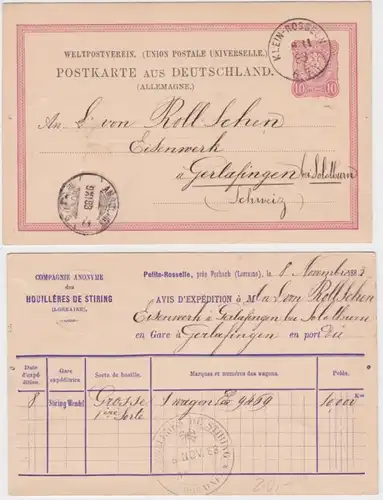 WELTPOSTVEREIN. (UNION POSTALE UNIVERSELLE.)
POSTKARTE AUS DEUTSCHLAND.
(ALLEMAGNE.)
KLEIN-ROSSELN
10 10
An d. von Roll'schen
Eisenwerk
à Gerlafingen bei Solothurn
(Schweiz)
COMPAGNIE ANONYME
des
HOUILLÈRES DE STIRING
(LORRAINE).
Petite-Rosselle, près Forbach (Lorraine), le 8 Novembre 1883
AVIS D'EXPÉDITION à M
von Roll'schen
Eisenwerk à Gerlafingen bei Solothurn
en Gare à Gerlafingen en port dû
Date d'expédition. Gare expéditrice Sorte de houille. Marques et numéros des wagons. Poids.
8 Stiring-Wendel Grosse 1 wagon 9469 10,000 Kos
1ère Sorte
DE STIRING